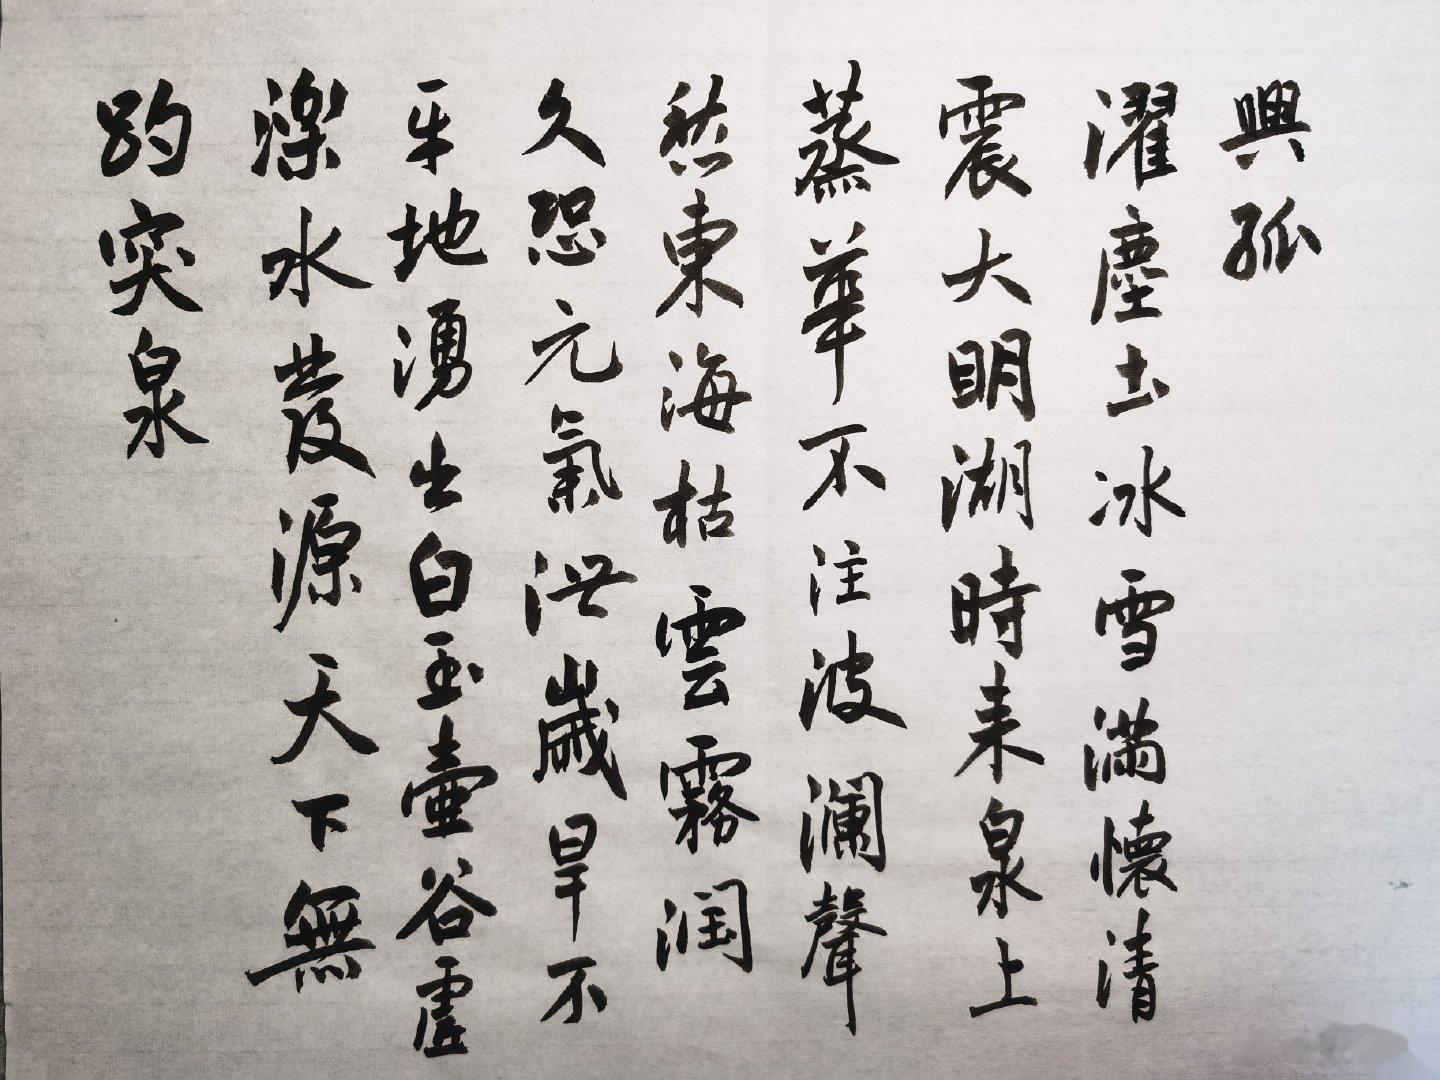 趵突泉
濼水發源天下無
平地湧出白玉壺谷虛
久恐元氣泄歲旱不
愁東海枯雲霧潤
蒸華不注波瀾聲
震大明湖時来泉上
濯塵土冰雪滿懷清
興孤